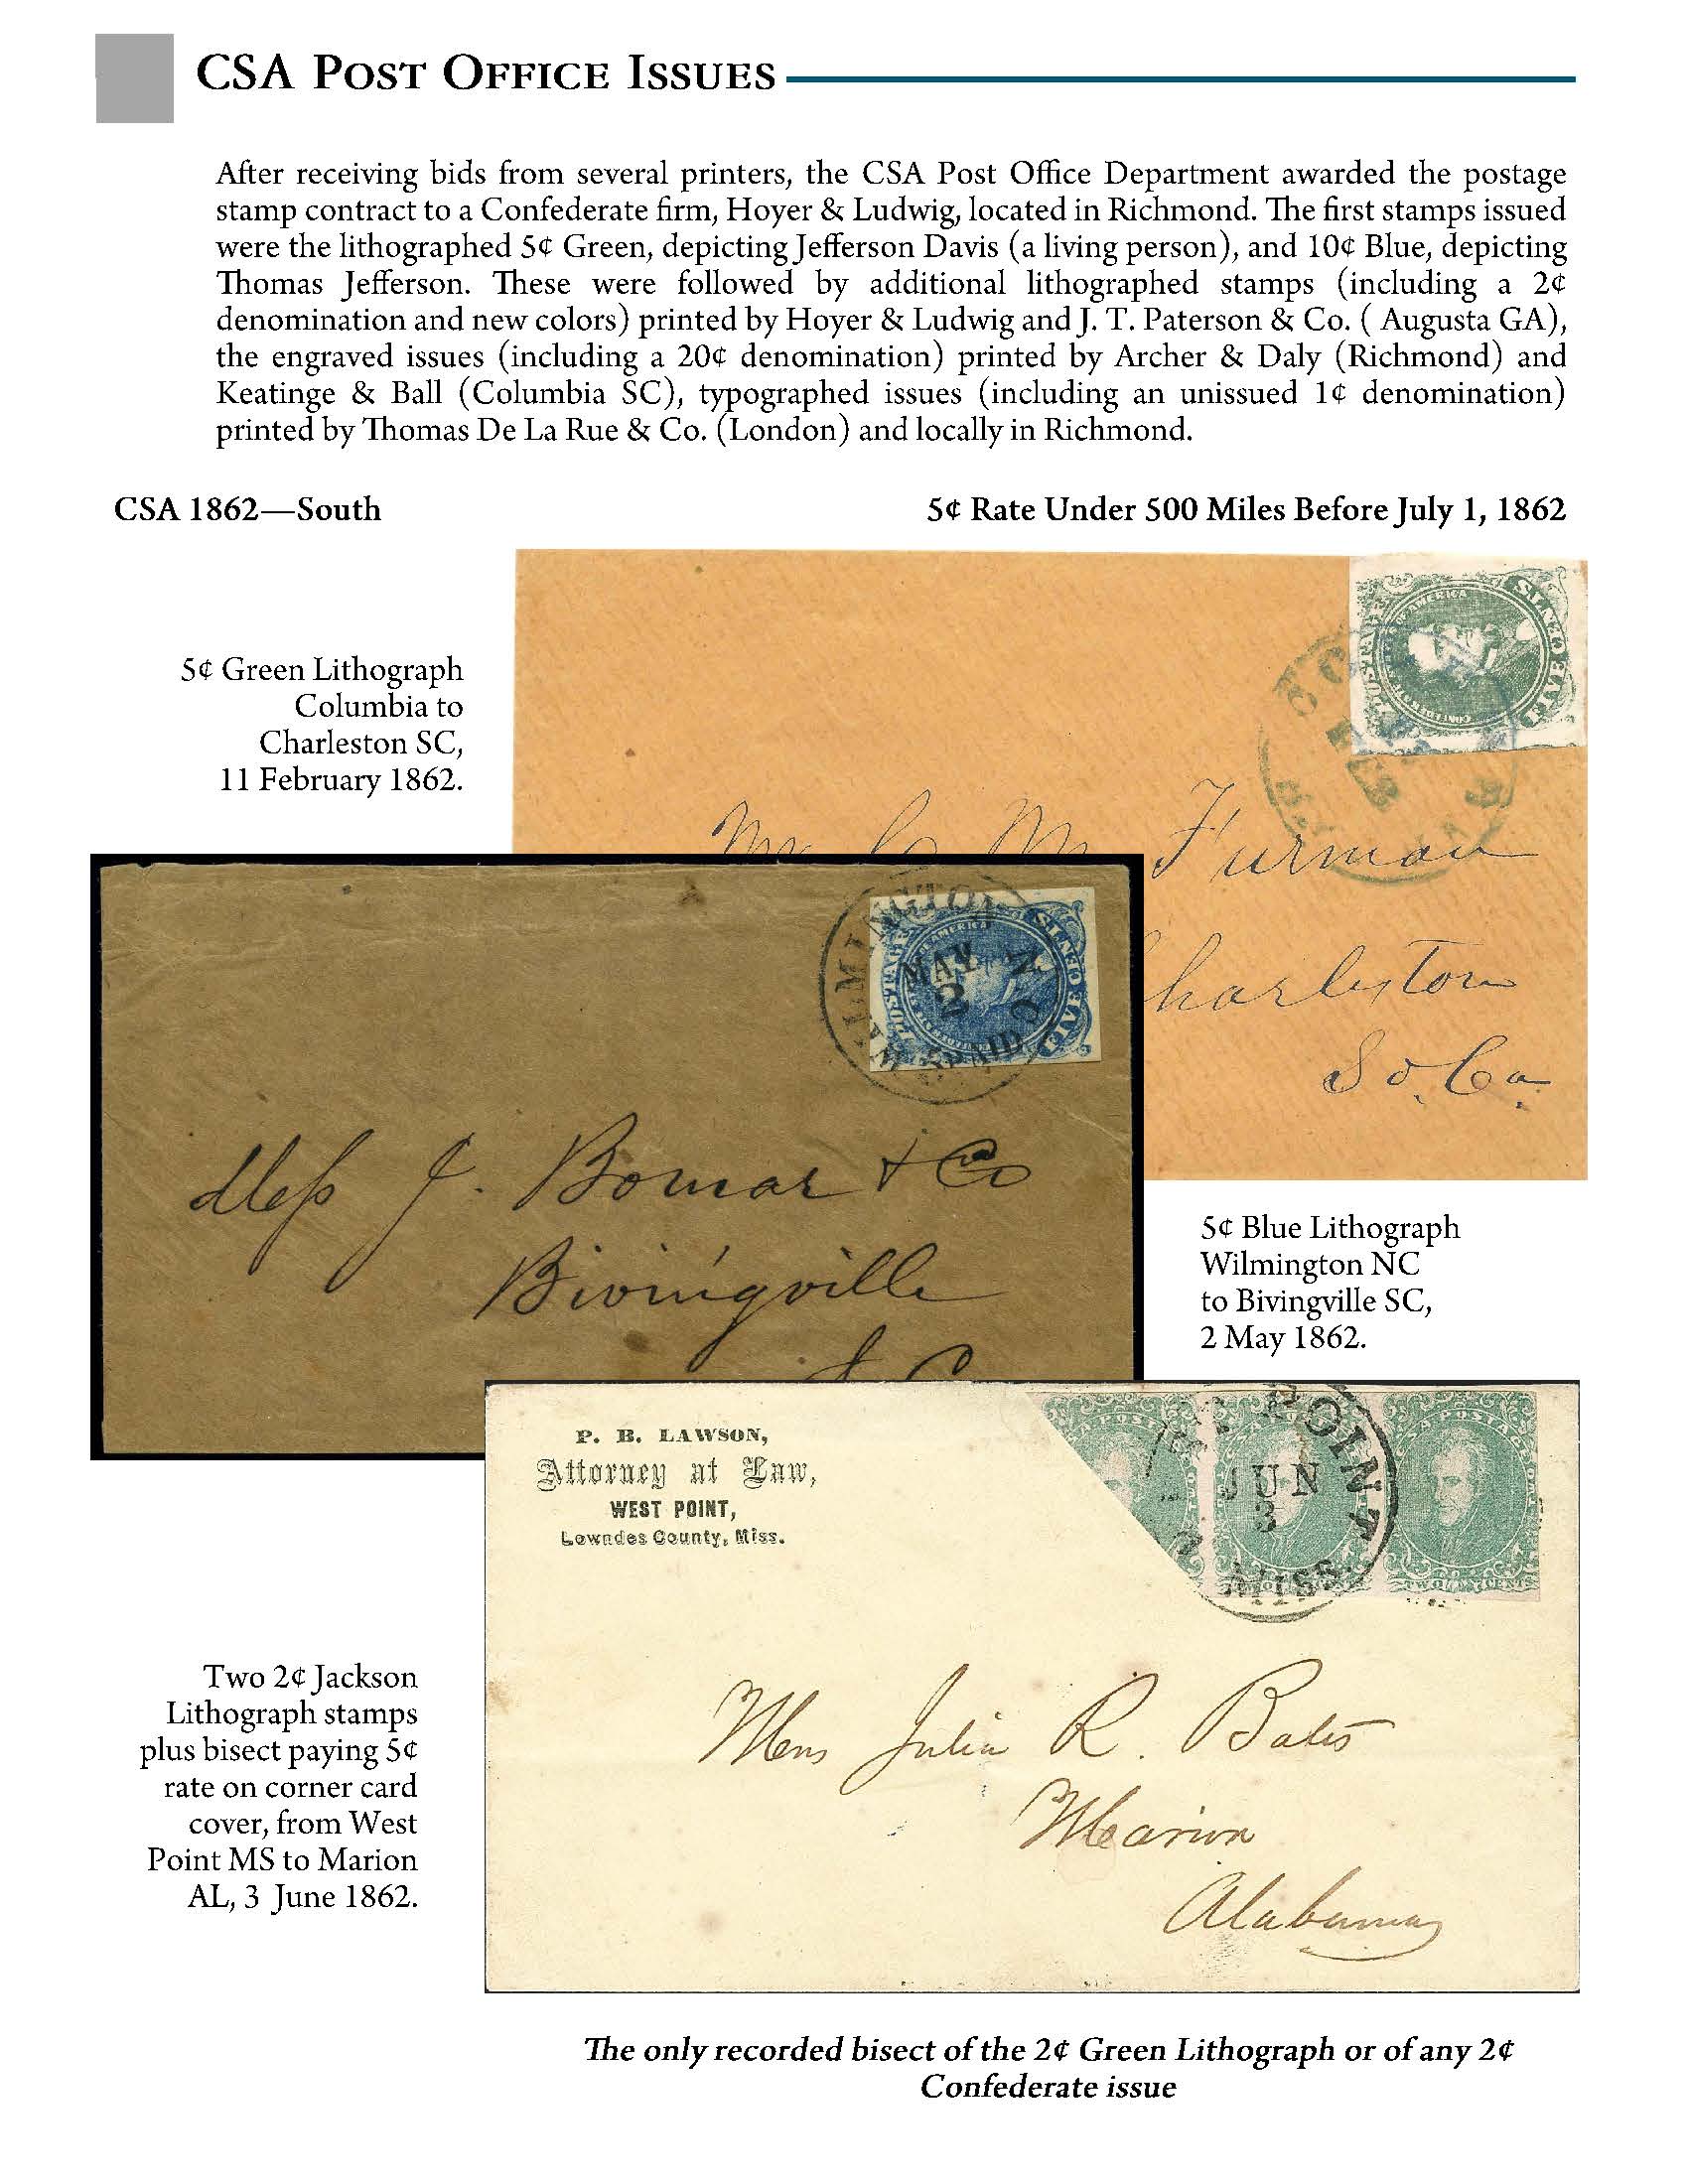 CSA POST OFFICE ISSUES
After receiving bids from several printers, the CSA Post Office Department awarded the postage
stamp contract to a Confederate firm, Hoyer & Ludwig, located in Richmond. The first stamps issued
were the lithographed 5¢ Green, depicting Jefferson Davis (a living person), and 10¢ Blue, depicting
Thomas Jefferson. These were followed by additional lithographed stamps (including a 2¢
denomination and new colors) printed by Hoyer & Ludwig and J. T. Paterson & Co. ( Augusta GA),
the engraved issues (including a 20¢ denomination) printed by Archer & Daly (Richmond) and
Keatinge & Ball (Columbia SC), typographed issues (including an unissued 1¢ denomination)
printed by Thomas De La Rue & Co. (London) and locally in Richmond.
CSA 1862—South
5¢ Rate Under 500 Miles Before July 1, 1862
5¢ Green Lithograph
Columbia to
Charleston SC,
11 February 1862.
POSTAGE
FIVE CENTS
AMERICA
FEB
Furman
harleston
So. Ca.
WILMINGTON
MAY
2
N C
PAID
POSTAGE
FIVE CENTS
AMERICA
Mess J. Bomar & Co
Bivingville
S C
5¢ Blue Lithograph
Wilmington NC
to Bivingville SC,
2 May 1862.
P. B. LAWSON,
Attorney at Law,
WEST POINT,
Lowndes County, Miss.
POINT
JUN
3
MISS.
POSTAGE
TWO CENTS
Mrs Julia R. Bates
Marion
Alabama
Two 2¢ Jackson
Lithograph stamps
plus bisect paying 5¢
rate on corner card
cover, from West
Point MS to Marion
AL, 3 June 1862.
The only recorded bisect of the 2¢ Green Lithograph or of any 2¢
Confederate issue